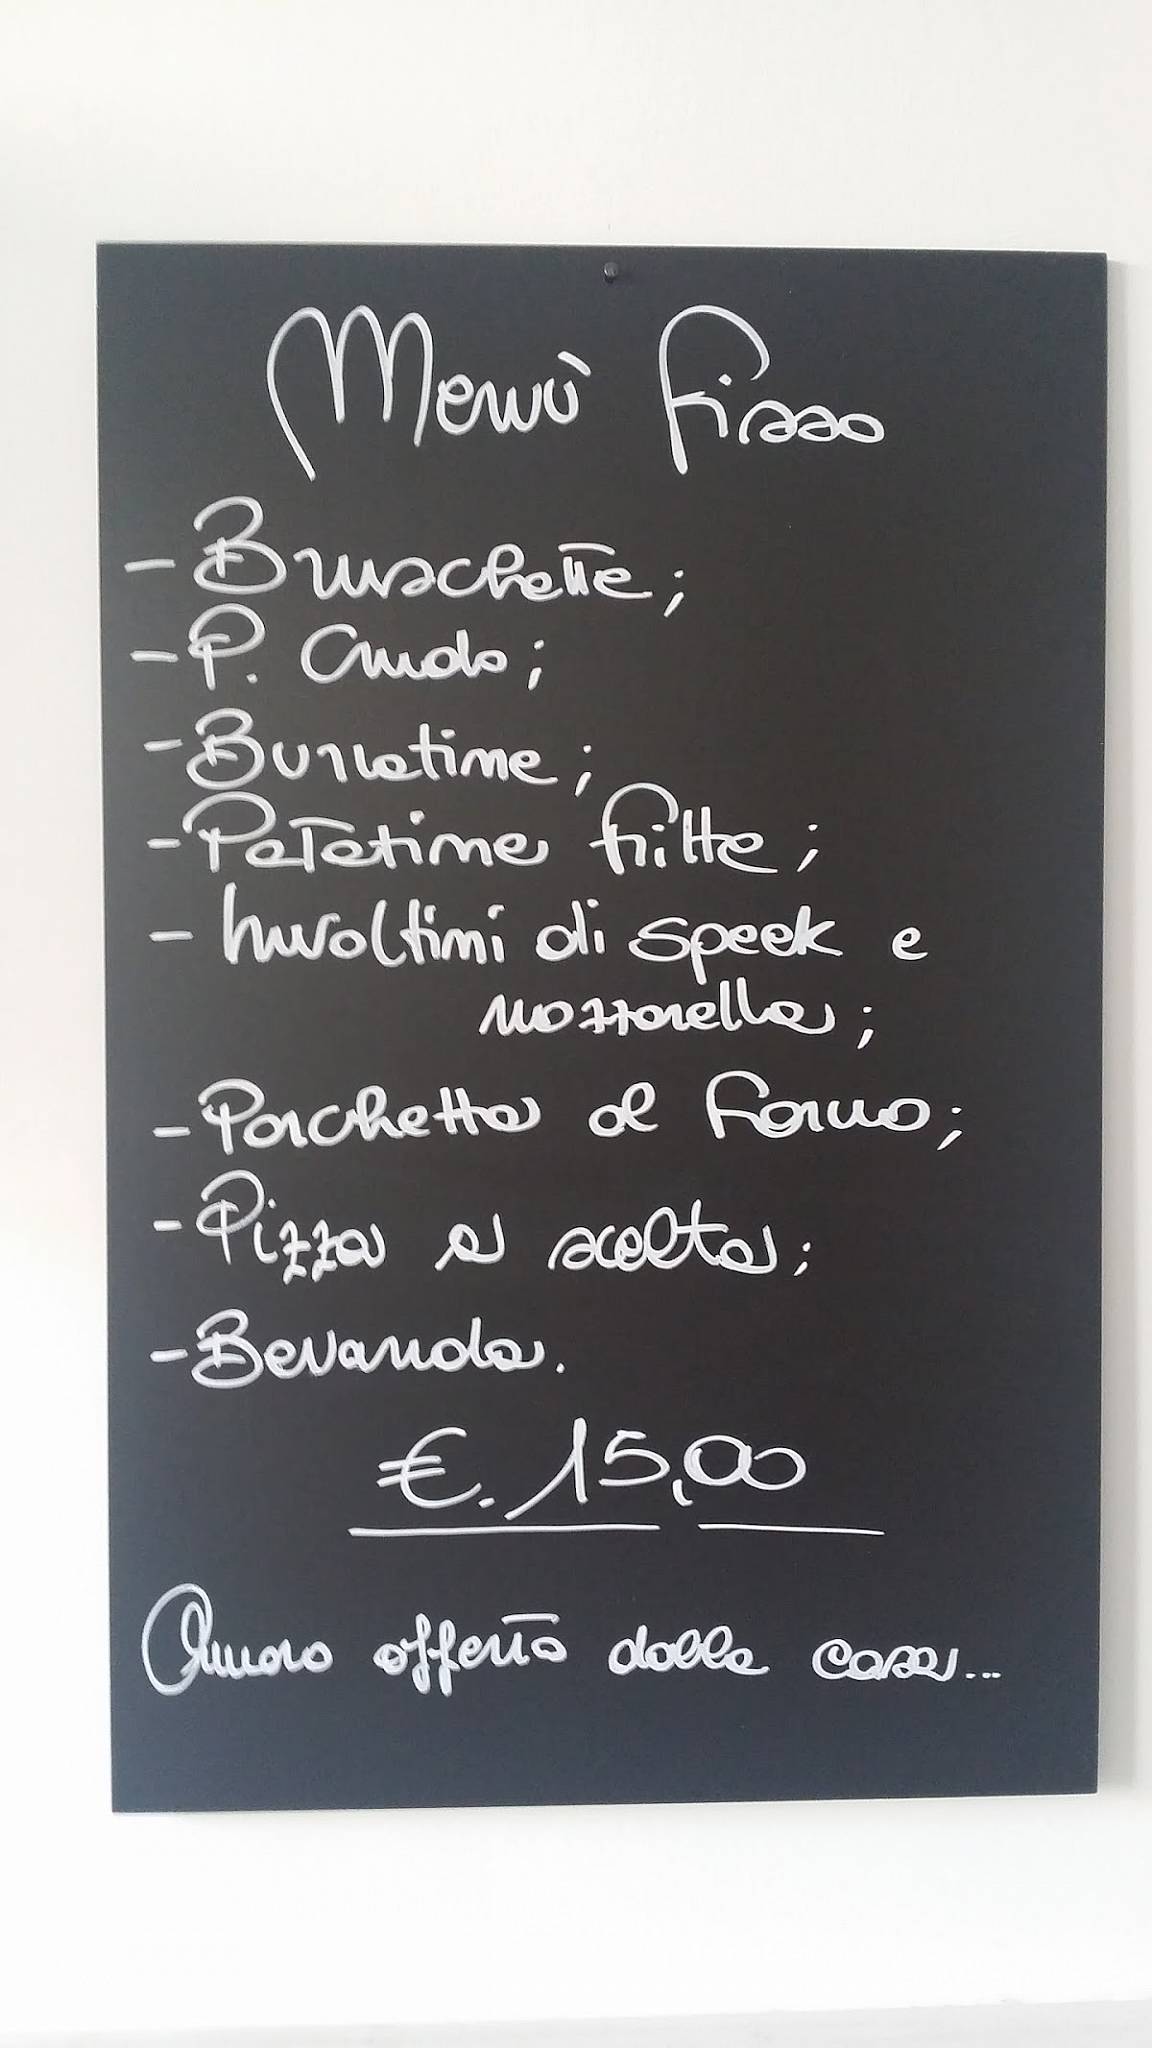 Menù fisso
- Bruschette;
- P. Crudo;
- Burratine;
- Patatine fritte;
- Involtini di speek e
mozzarella;
- Porchetta al forno;
- Pizza a scelta;
- Bevanda.
€. 15,00
Amaro offerto dalla casa...